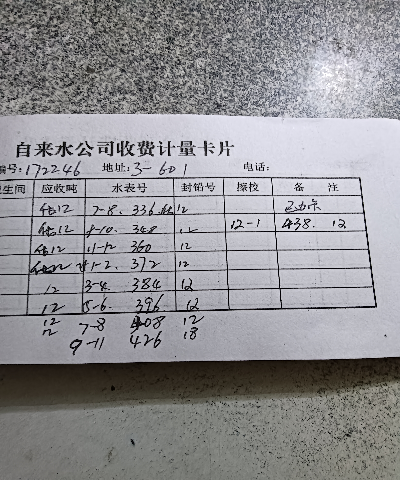 自来水公司收费计量卡片
编号:172246 地址:3-601 电话:
生间 应收吨 水表号 封铅号 擦校 备 注
估12 7-8. 336. 12
估12 9-10. 348 12 12-1 438. 12
估12 11-12 360 12
估12 1-2. 372 12
12 3-4. 384 12
12 5-6. 396 12
12 7-8 408 12
12 9-11 426 18